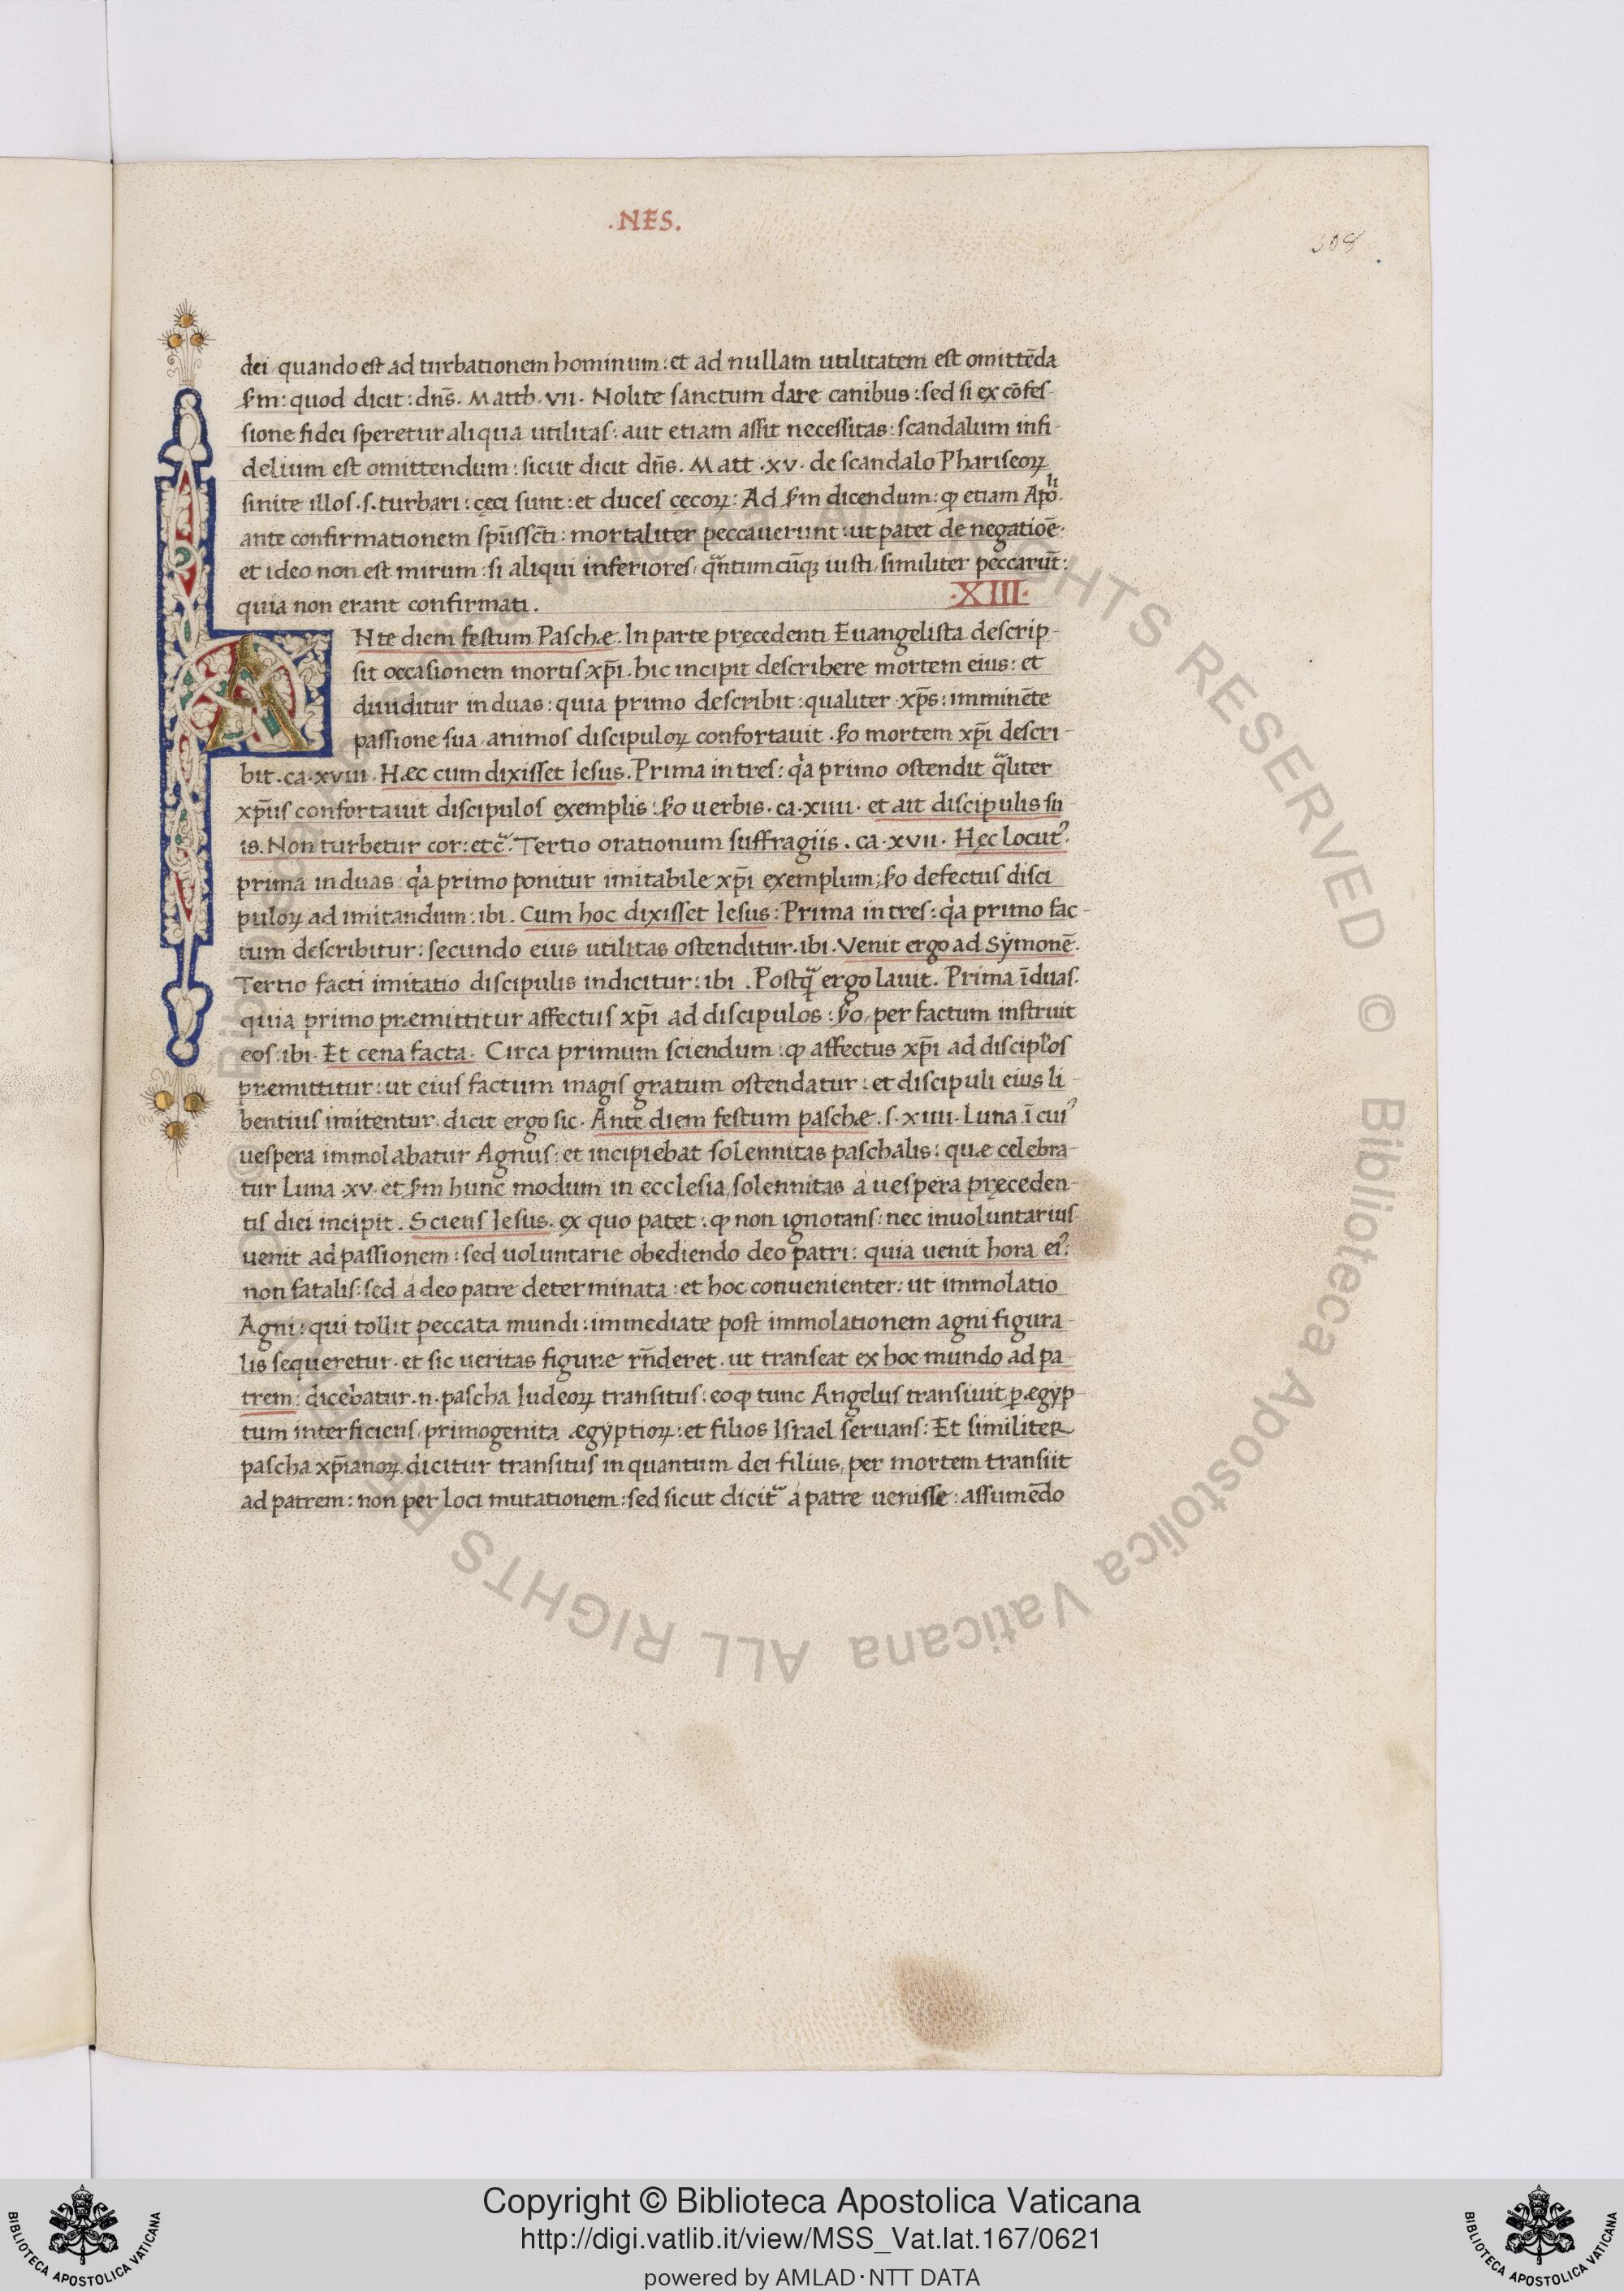 .NES.
308
dei quando est ad turbationem hominum: et ad nullam utilitatem est omittēda
ẜm: quod dicit: dn̄s. Matth. vii. Nolite sanctum dare canibus: sed si ex cōfes-
sione fidei speretur aliqua utilitas: aut etiam assit necessitas: scandalum infi-
delium est omittendum: sicut dicit dn̄s. Matt .xv. de scandalo Phariseoꝝ
sinite illos .s. turbari: cęci sunt: et duces cęcoꝝ: Ad ẜm dicendum: ꝙ etiam Apo̅li.
ante confirmationem spūssc̄ti: mortaliter peccauerunt: ut patet de negatioē:
et ideo non est mirum: si aliqui inferiores, qͣntumcūqꝫ iusti, similiter peccarūt:
quia non erant confirmati.
.XIII.
ANte diem festum Paschæ. In parte pręcedenti Euangelista descrip-
sit occasionem mortis xp̄i. hic incipit describere mortem eius: et
diuiditur in duas: quia primo describit: qualiter xp̄s: imminēte
passione sua animos discipuloꝝ confortauit. ẜo mortem xp̄i descri-
bit. ca. xviii. Hæc cum dixisset Iesus. Prima in tres: qͥa primo ostendit qͣliter
xp̄us confortauit discipulos exemplis: ẜo uerbis. ca. xiiii. et ait discipulis su
is. Non turbetur cor: etcͣ. Tertio orationum suffragiis. ca. xvii. Hęc locutꝰ.
prima in duas: qͥa primo ponitur imitabile xp̄i exemplum: ẜo defectus disci
puloꝝ ad imitandum: ibi. Cum hoc dixisset Iesus: Prima in tres: qͥa primo fac-
tum describitur: secundo eius utilitas ostenditur. ibi. Venit ergo ad Symonē.
Tertio facti imitatio discipulis indicitur: ibi. Postqͣ ergo lauit. Prima ī duas.
quia primo præmittitur affectus xp̄i ad discipulos: ẜo, per factum instruit
eos: ibi. Et cena facta. Circa primum sciendum: ꝙ affectus xp̄i ad discipl̓os
præmittitur: ut eius factum magis gratum ostendatur: et discipuli eius li-
bentius imitentur. dicit ergo sic. Ante diem festum paschæ .s. xiiii. Luna ī cuiꝰ
uespera immolabatur Agnus: et incipiebat solennitas paschalis: quæ celebra-
tur Luna .xv. et ẜm hunc modum in ecclesia, solennitas a uespera pręceden-
tis diei incipit. Sciens Iesus. ex quo patet: ꝙ non ignorans: nec inuoluntarius
uenit ad passionem: sed uoluntarie obediendo deo patri: quia uenit hora eiꝰ:
non fatalis: sed a deo patre determinata: et hoc conuenienter: ut immolatio
Agni: qui tollit peccata mundi: immediate post immolationem agni figura-
lis sequeretur. et sic ueritas figuræ rn̄deret. ut transeat ex hoc mundo ad pa
trem: dicebatur .n. pascha Iudeoꝝ transitus: eoꝙ tunc Angelus transiuit ꝑ ægyp-
tum interficiens, primogenita ægyptioꝝ: et filios Israel seruans: Et similiter
pascha xp̄ianoꝝ dicitur transitus in quantum dei filius, per mortem transiit
ad patrem: non per loci mutationem: sed sicut dicitᷣ a patre uenisse: assumēdo
© Biblioteca Apostolica Vaticana ALL RIGHTS RESERVED
Copyright © Biblioteca Apostolica Vaticana
http://digi.vatlib.it/view/MSS_Vat.lat.167/0621
powered by AMLAD·NTT DATA
BIBLIOTECA APOSTOLICA VATICANA
BIBLIOTECA APOSTOLICA VATICANA